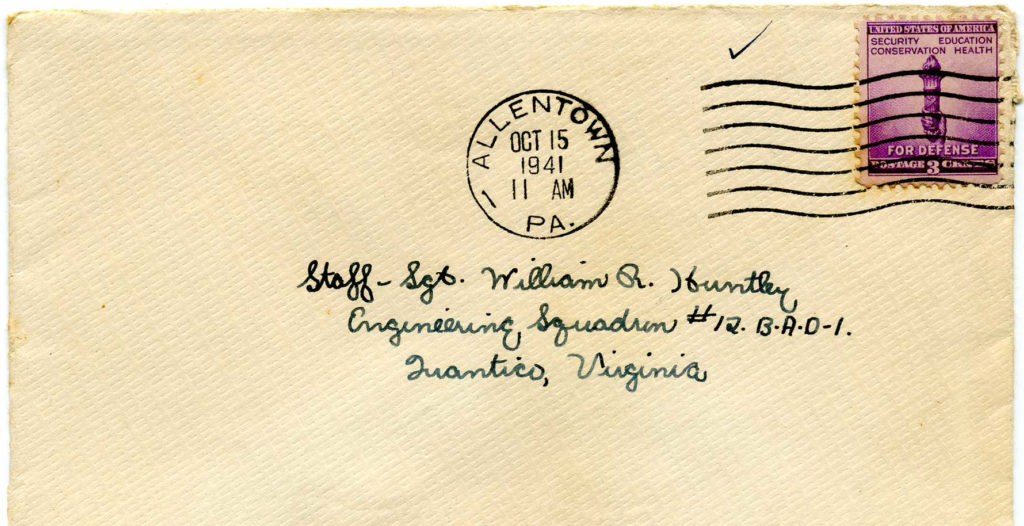 UNITED STATES OF AMERICA
SECURITY EDUCATION
CONSERVATION HEALTH
FOR DEFENSE
POSTAGE 3 CENTS
ALLENTOWN
OCT 15
1941
11 AM
PA.
1
Staff-Sgt. William R. Huntley
Engineering Squadron #12. B-A-D-1.
Quantico, Virginia